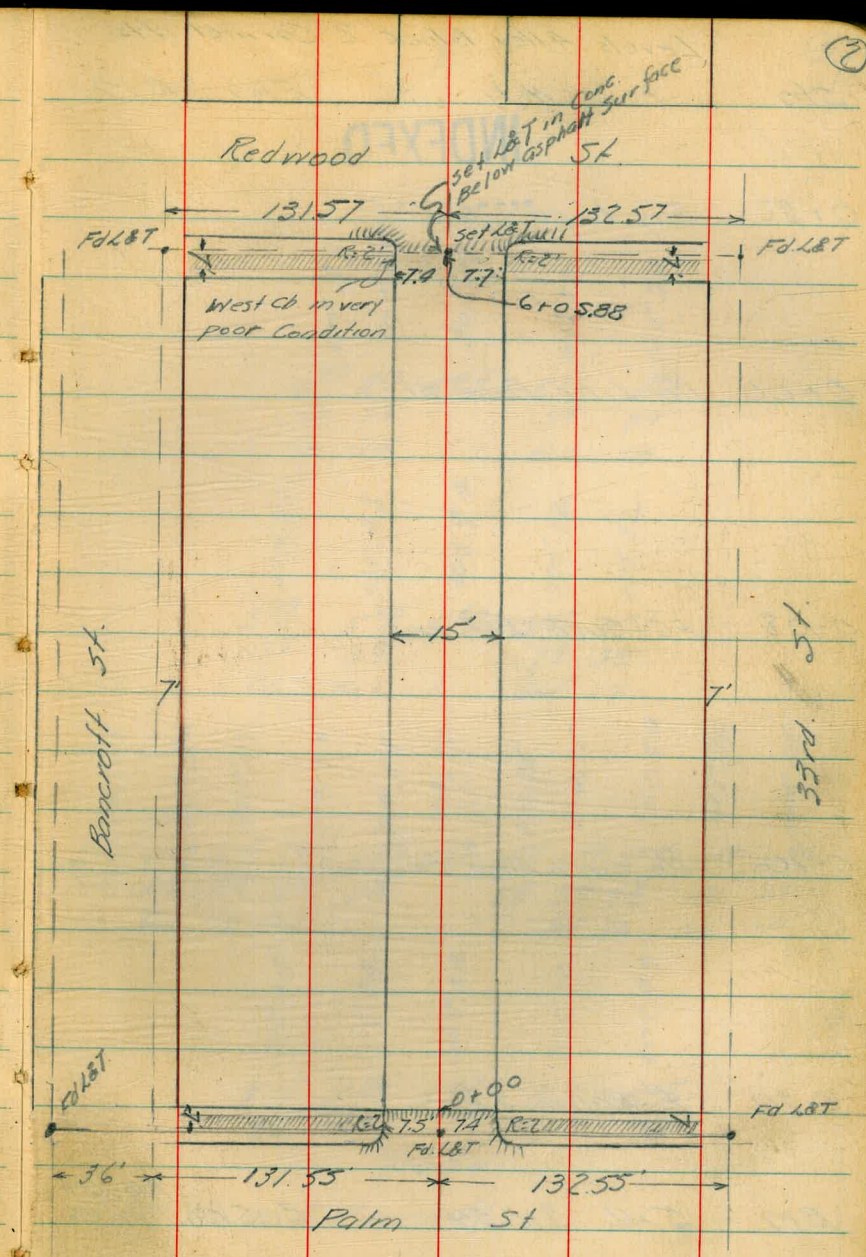 2
set L&T in Conc.
Below asphalt surface
Redwood St.
131.57 132.57
Fd L&T set L&T Fd L&T
R=2' R=2'
7.4 7.7
6+05.88
West Cb in very
poor Condition
15'
Bancroft St.
7'
7'
33rd. St.
Fd L&T
0+00
Fd L&T
R=2 7.5 7.4 R=2
Fd. L&T
36' 131.55' 132.55'
Palm St